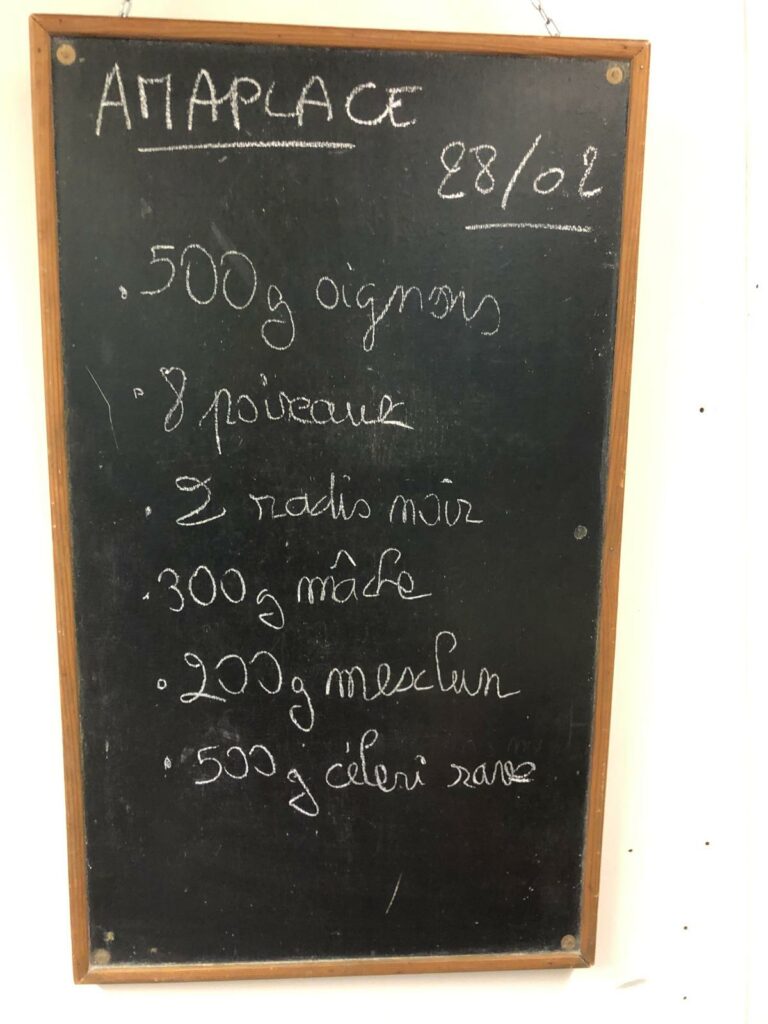 AMAPLACE
28/02
. 500g oignons
. 8 poireaux
. 2 radis noir
. 300g mâche
. 200g mesclun
. 500g céleri rave